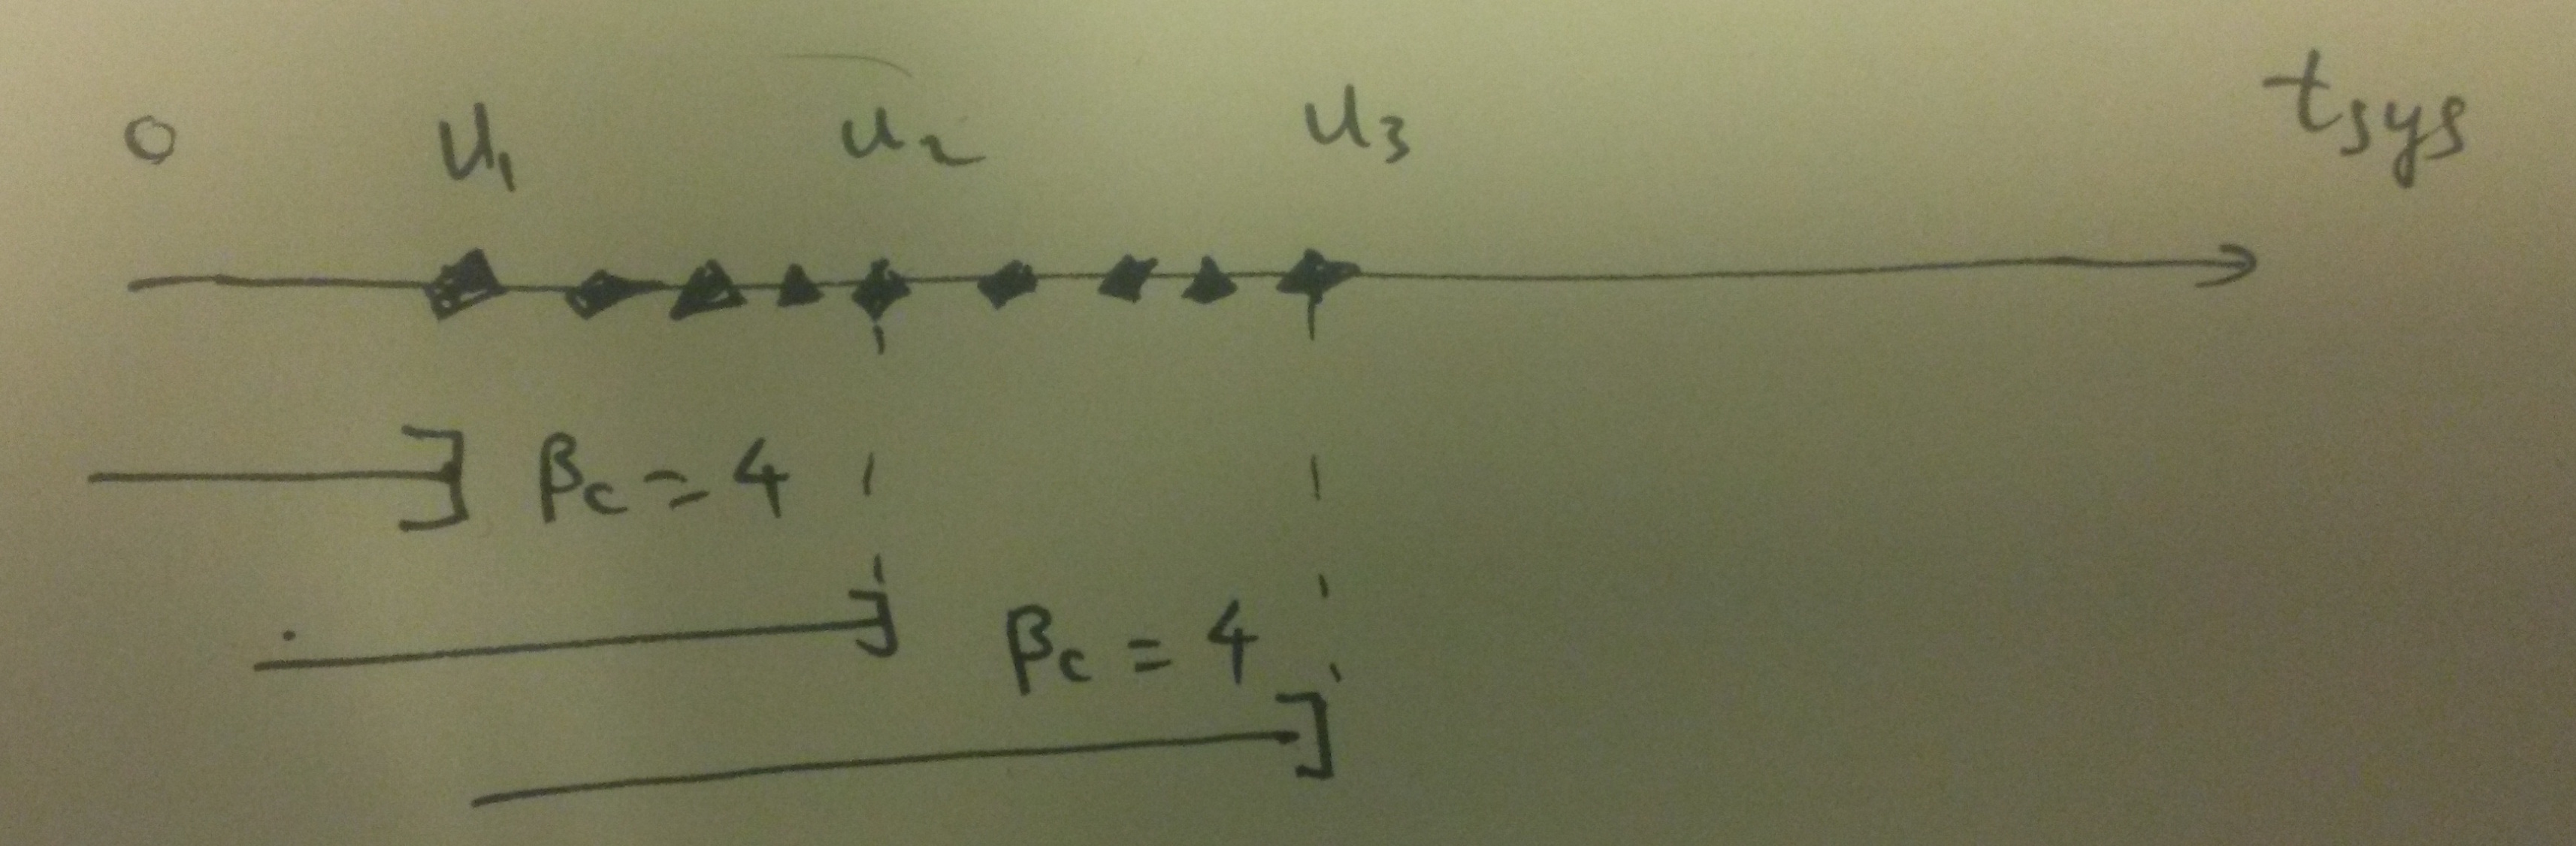 0 u₁ u₂ u₃ tsys
βc = 4
βc = 4